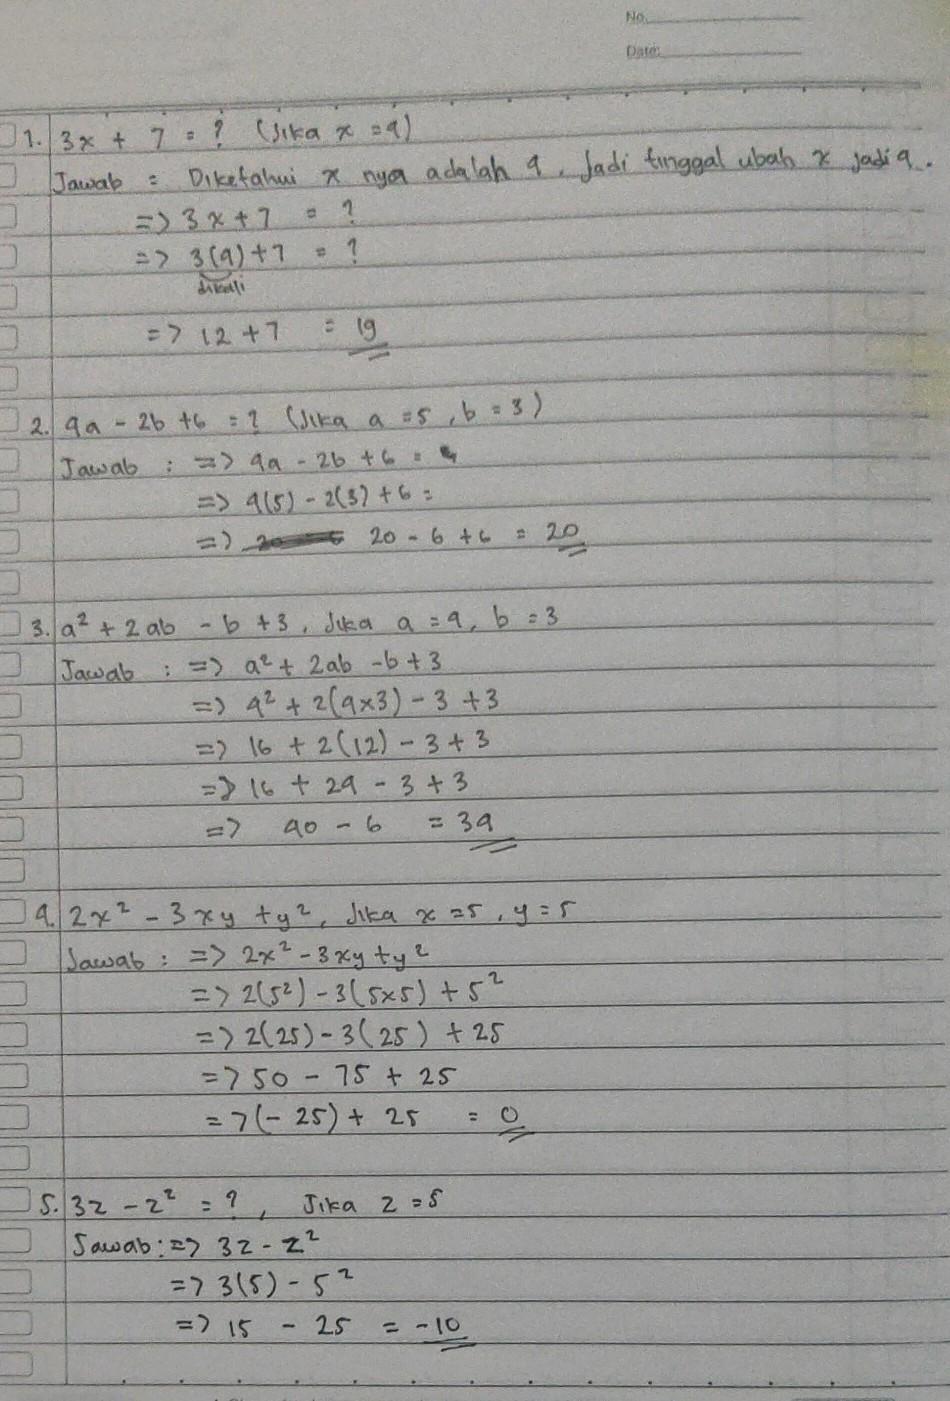 No.
Date:
1. 3x + 7 = ? (Jika x = 4)
Jawab = Diketahui x nya adalah 4, Jadi tinggal ubah x jadi 4.
=> 3x + 7 = ?
=> 3(4) + 7 = ?
dikali
=> 12 + 7 = 19
2. 4a - 2b + 6 = ? (Jika a = 5, b = 3)
Jawab : => 4a - 2b + 6 =
=> 4(5) - 2(3) + 6 =
=> 20 - 6 + 6 = 20
3. a² + 2ab - b + 3, Jika a = 4, b = 3
Jawab : => a² + 2ab - b + 3
=> 4² + 2(4x3) - 3 + 3
=> 16 + 2(12) - 3 + 3
=> 16 + 24 - 3 + 3
=> 40 - 6 = 34
4. 2x² - 3xy + y², Jika x = 5, y = 5
Jawab : => 2x² - 3xy + y²
=> 2(5²) - 3(5x5) + 5²
=> 2(25) - 3(25) + 25
=> 50 - 75 + 25
=> (- 25) + 25 = 0
5. 3z - z² = ?, Jika z = 5
Jawab : => 3z - z²
=> 3(5) - 5²
=> 15 - 25 = -10